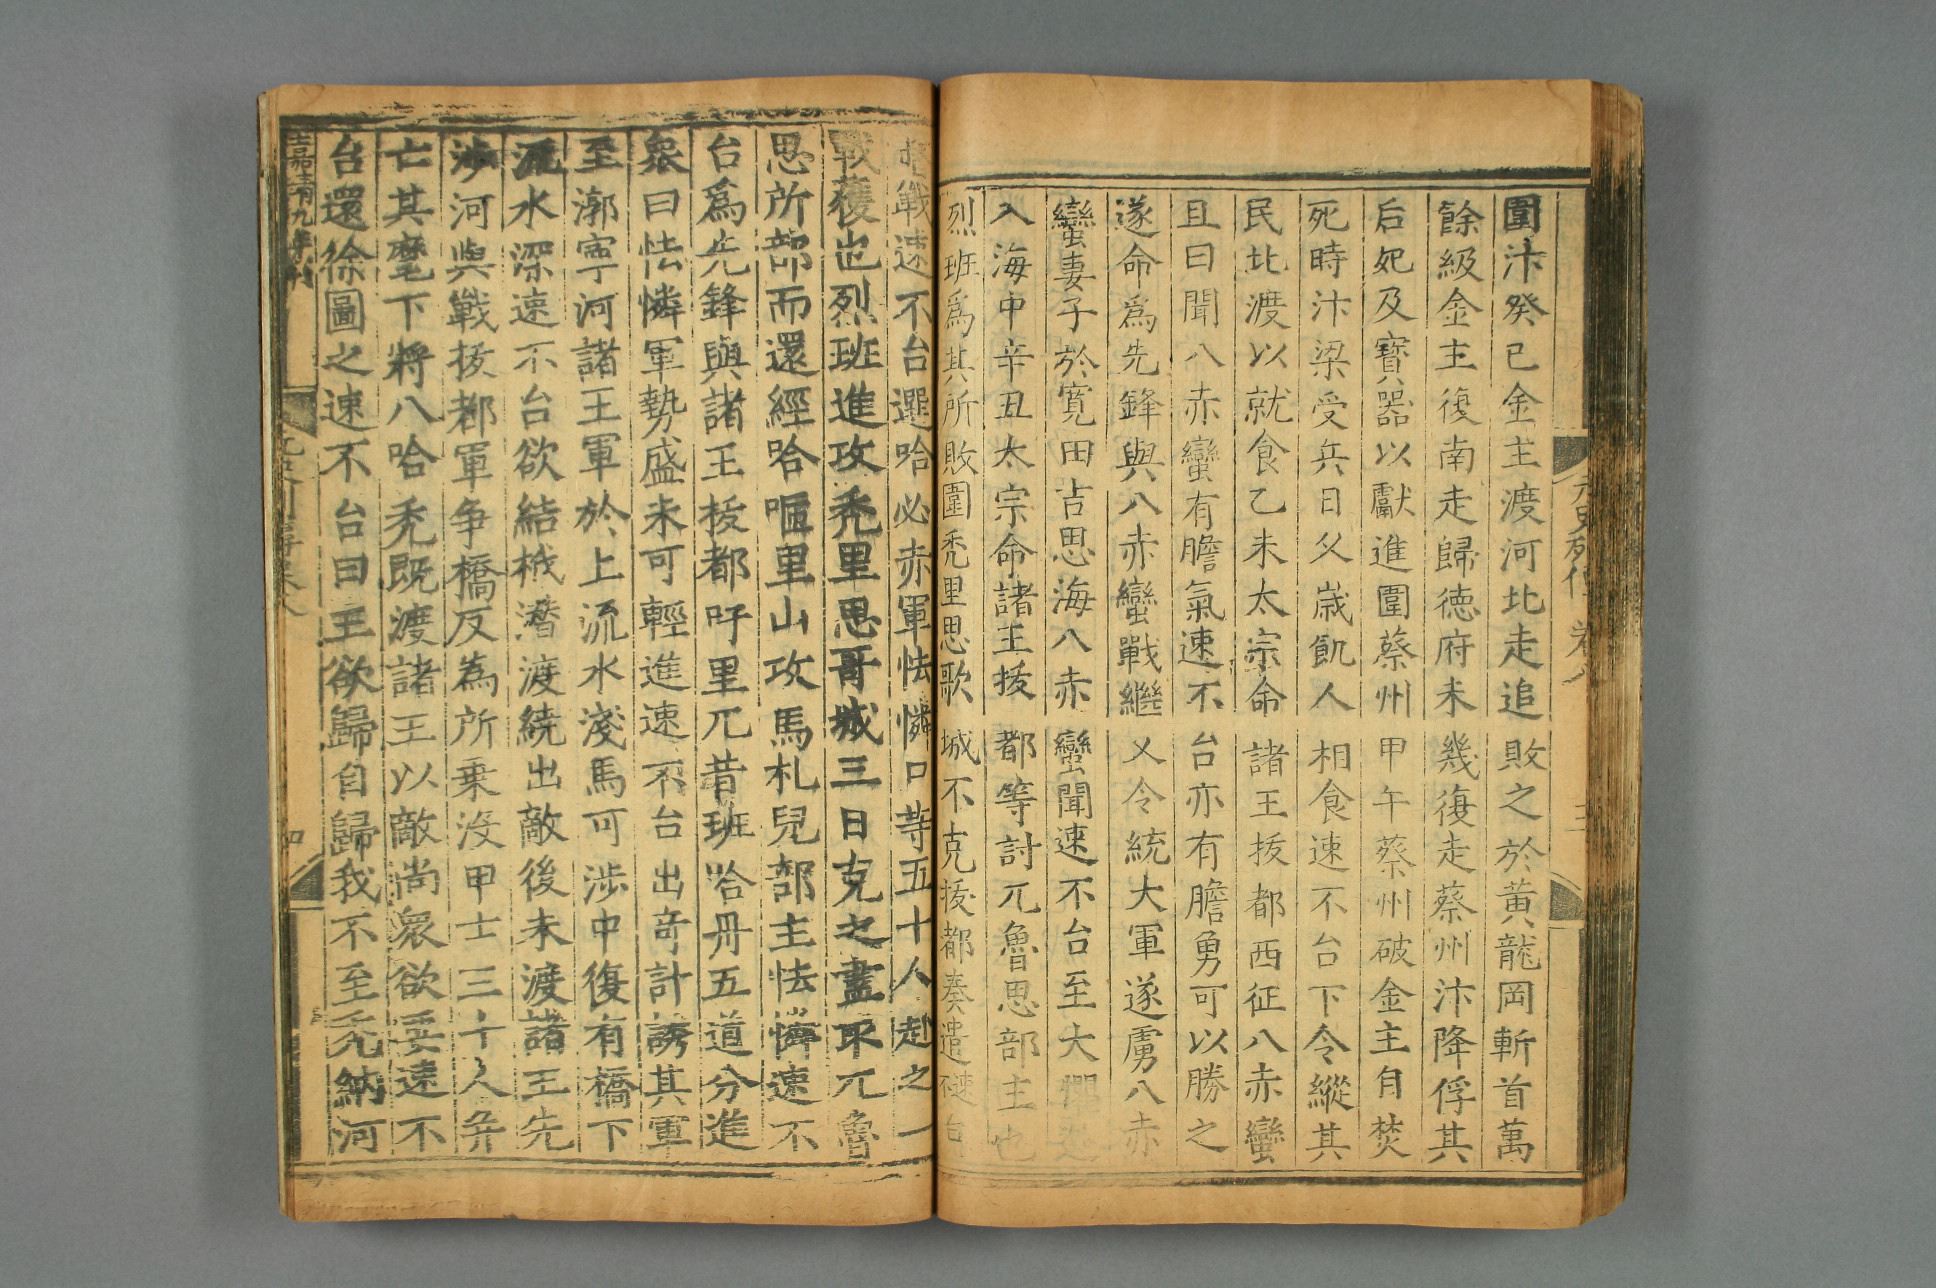 圍汴癸巳金主渡河北走追敗之於黃龍岡斬首萬
餘級金主復南走歸德府未幾復走蔡州汴降俘其
后妃及寶器以獻進圍蔡州甲午蔡州破金主自焚
死時汴梁受兵日久歲飢人相食速不台下令縱其
民北渡以就食乙未太宗命諸王拔都西征八赤蠻
且曰聞八赤蠻有膽氣速不台亦有膽勇可以勝之
遂命爲先鋒與八赤蠻戰繼又令統大軍遂虜八赤
蠻妻子於寬田吉思海八赤蠻聞速不台至大懼逃
入海中辛丑太宗命諸王拔都等討兀魯思部主也
烈班爲其所敗圍禿里思歌城不克拔都奏遣速不台
督戰速不台選哈必赤軍怯憐口等五十人赴之一
戰獲也烈班進攻禿里思哥城三日克之盡取兀魯
思所部而還經哈咂里山攻馬札兒部主怯憐速不
台爲先鋒與諸王拔都吁里兀昔班哈丹五道分進
衆曰怯憐軍勢盛未可輕進速不台出奇計誘其軍
至漷寧河諸王軍於上流水淺馬可涉中復有橋下
流水深速不台欲結栰潛渡繞出敵後未渡諸王先
涉河與戰拔都軍争橋反為所乗沒甲士三十人并
亡其麾下將八哈禿既渡諸王以敵尚衆欲要速不
台還徐圖之速不台曰王欲歸自歸我不至禿納河
元史列傳卷八
三
嘉靖九年刊
元史列傳卷八
四